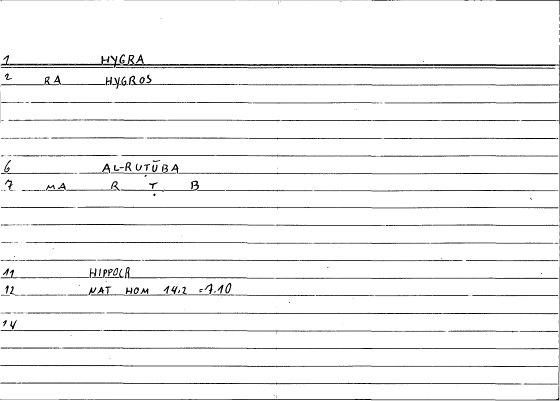 1 HYGRA
2 RA HYGROS
6 AL-RUṬŪBA
7 MA R Ṭ B
11 HIPPOCR
12 NAT HOM 14.2 =7.10
14